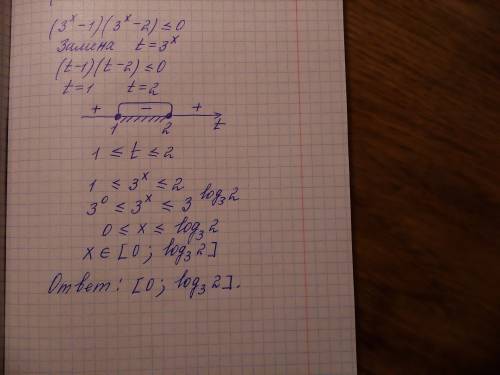 (3ˣ-1)(3ˣ-2)≤0
Замена t=3ˣ
(t-1)(t-2)≤0
t=1 t=2
+ - +
1 2 t
1 ≤ t ≤ 2
1 ≤ 3ˣ ≤ 2
3⁰ ≤ 3ˣ ≤ 3^log₃2
0 ≤ x ≤ log₃2
x ∈ [0; log₃2]
Ответ: [0; log₃2].